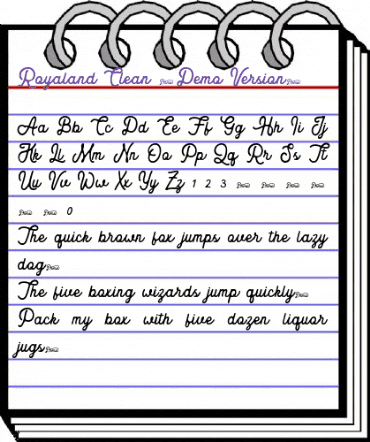 Royaland Clean Demo Version
Aa Bb Cc Dd Ee Ff Gg Hh Ii Jj
Kk Ll Mm Nn Oo Pp Qq Rr Ss Tt
Uu Vv Ww Xx Yy Zz 1 2 3
0
The quick brown fox jumps over the lazy
dog
The five boxing wizards jump quickly
Pack my box with five dozen liquor
jugs